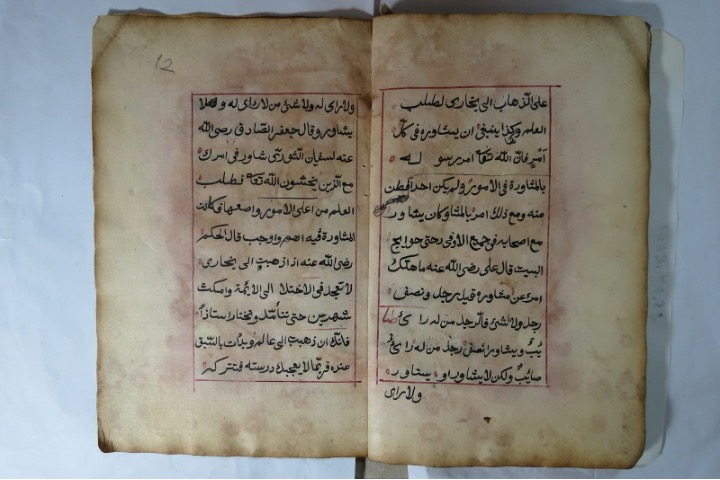 على الذهاب الى بخارى لطلب
العلم وكذا ينبغى ان يشاوره فى كل
امرٍ فانّ الله تعا امر رسو له
بالمشاورة فى الامور ولم يكن احد افطن
منه ومع ذلك امر بالمشاو كان يشاور
مع اصحابه فى جميع الامور حتى حوايج
البيت قال على رضى الله عنه ما هلك
امرئ عن مشاوره قيل رجل ونصف
رجل ولا شئ فالرجل من له راى صا
يبٌ ويشاور انصف رجل من له راى
صايبٌ ولكن لا يشاور او يستاور
ولا راى
12
ولا راى له ولا شئ من لا راى له و لا
يشاور وقال جعفر الصادق رضى الله
عنه لسفيان الثورى شاور فى امرك
مع الذين يخشون الله تعا فطلب
العلم من اعلى الامور واصعبها فكانت
المشاورة فيه اهم واوجب قال الحكيم
رضى الله عنه اذا ذهبت الى بخارى
لا تعجل فى الاختلا الى الائمة وامكث
شهرين حتى تتأمل وتختار استاذاً
فانك ان ذهبت الى عالم وبدات بالسبق
عنده فربما لا يعجبك درسته فتتركه